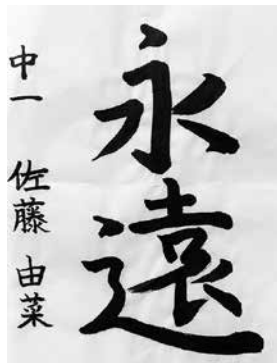 永遠
中一 佐藤 由菜